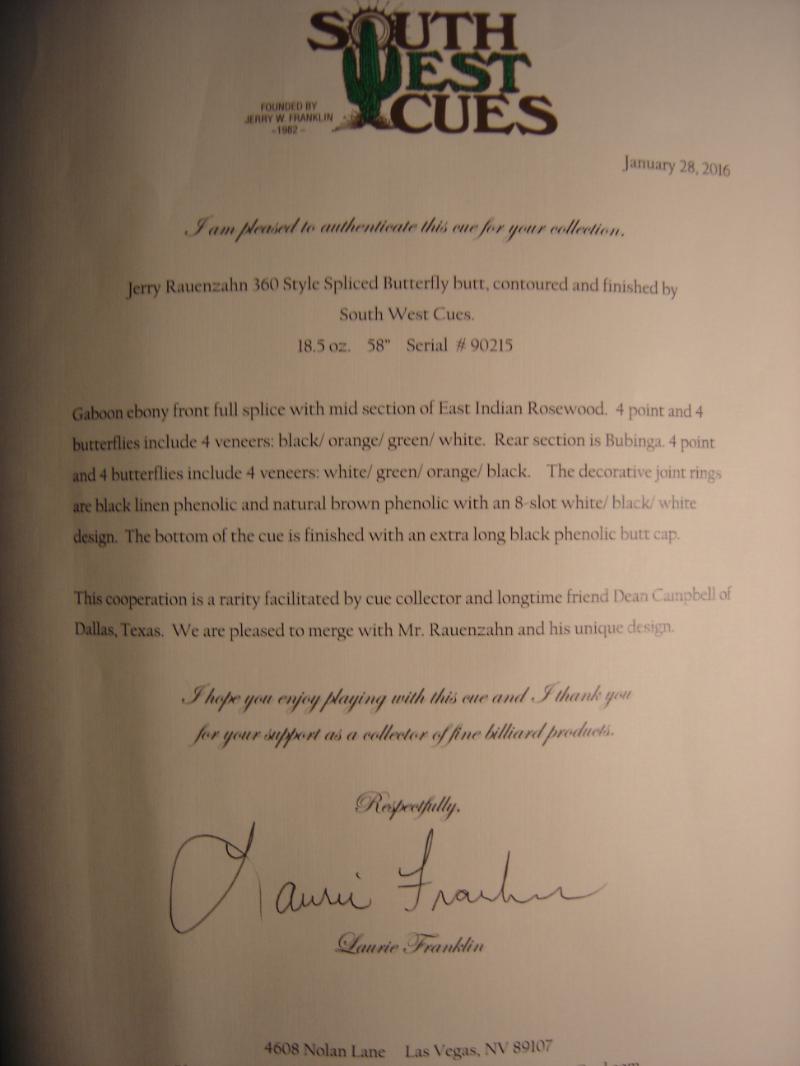 SOUTH
WEST
CUES
FOUNDED BY
JERRY W. FRANKLIN
~1982~
January 28, 2016
I am pleased to authenticate this cue for your collection.
Jerry Rauenzahn 360 Style Spliced Butterfly butt, contoured and finished by
South West Cues.
18.5 oz. 58" Serial # 90215
Gaboon ebony front full splice with mid section of East Indian Rosewood. 4 point and 4
butterflies include 4 veneers: black/ orange/ green/ white. Rear section is Bubinga. 4 point
and 4 butterflies include 4 veneers: white/ green/ orange/ black. The decorative joint rings
are black linen phenolic and natural brown phenolic with an 8-slot white/ black/ white
design. The bottom of the cue is finished with an extra long black phenolic butt cap.
This cooperation is a rarity facilitated by cue collector and longtime friend Dean Campbell of
Dallas, Texas. We are pleased to merge with Mr. Rauenzahn and his unique design.
I hope you enjoy playing with this cue and I thank you
for your support as a collector of fine billiard products.
Respectfully,
Laurie Franklin
Laurie Franklin
4608 Nolan Lane Las Vegas, NV 89107